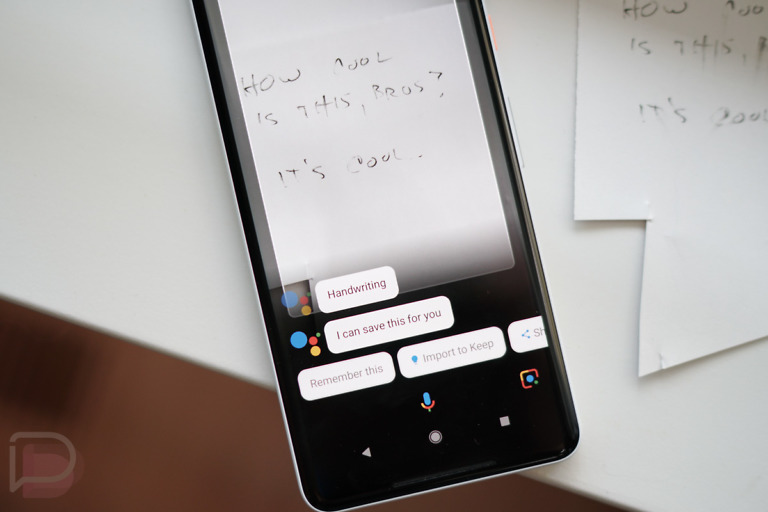 HOW COOL
IS THIS, BROS?
IT'S COOL..
Handwriting
I can save this for you
Remember this
Import to Keep
Sh
HOW COO
IS THIS, B
IT'S COOL